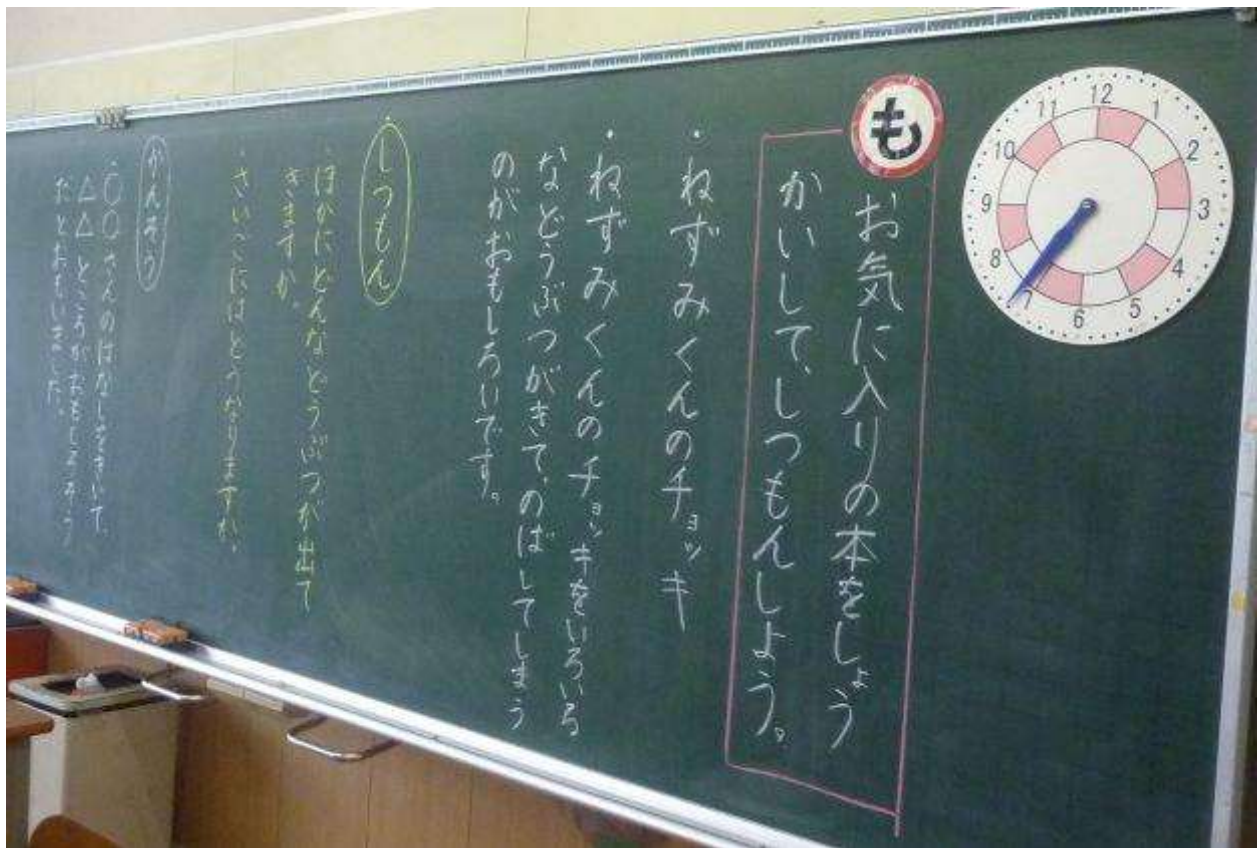 も
お気に入りの本をしょう
かいして、しつもんしよう。
・ねずみくんのチョッキ
・ねずみくんのチョッキをいろいろ
などうぶつがきて、のばしてしまう
のがおもしろいです。
・しつもん
・ほかにどんなどうぶつが出て
きますか。
・さいごにはどうなりますか。
かんそう
・○○さんのはなしをきいて、
△△ところがおもしろそう
だとおもいました。
12
1
2
3
4
5
6
7
8
9
10
11